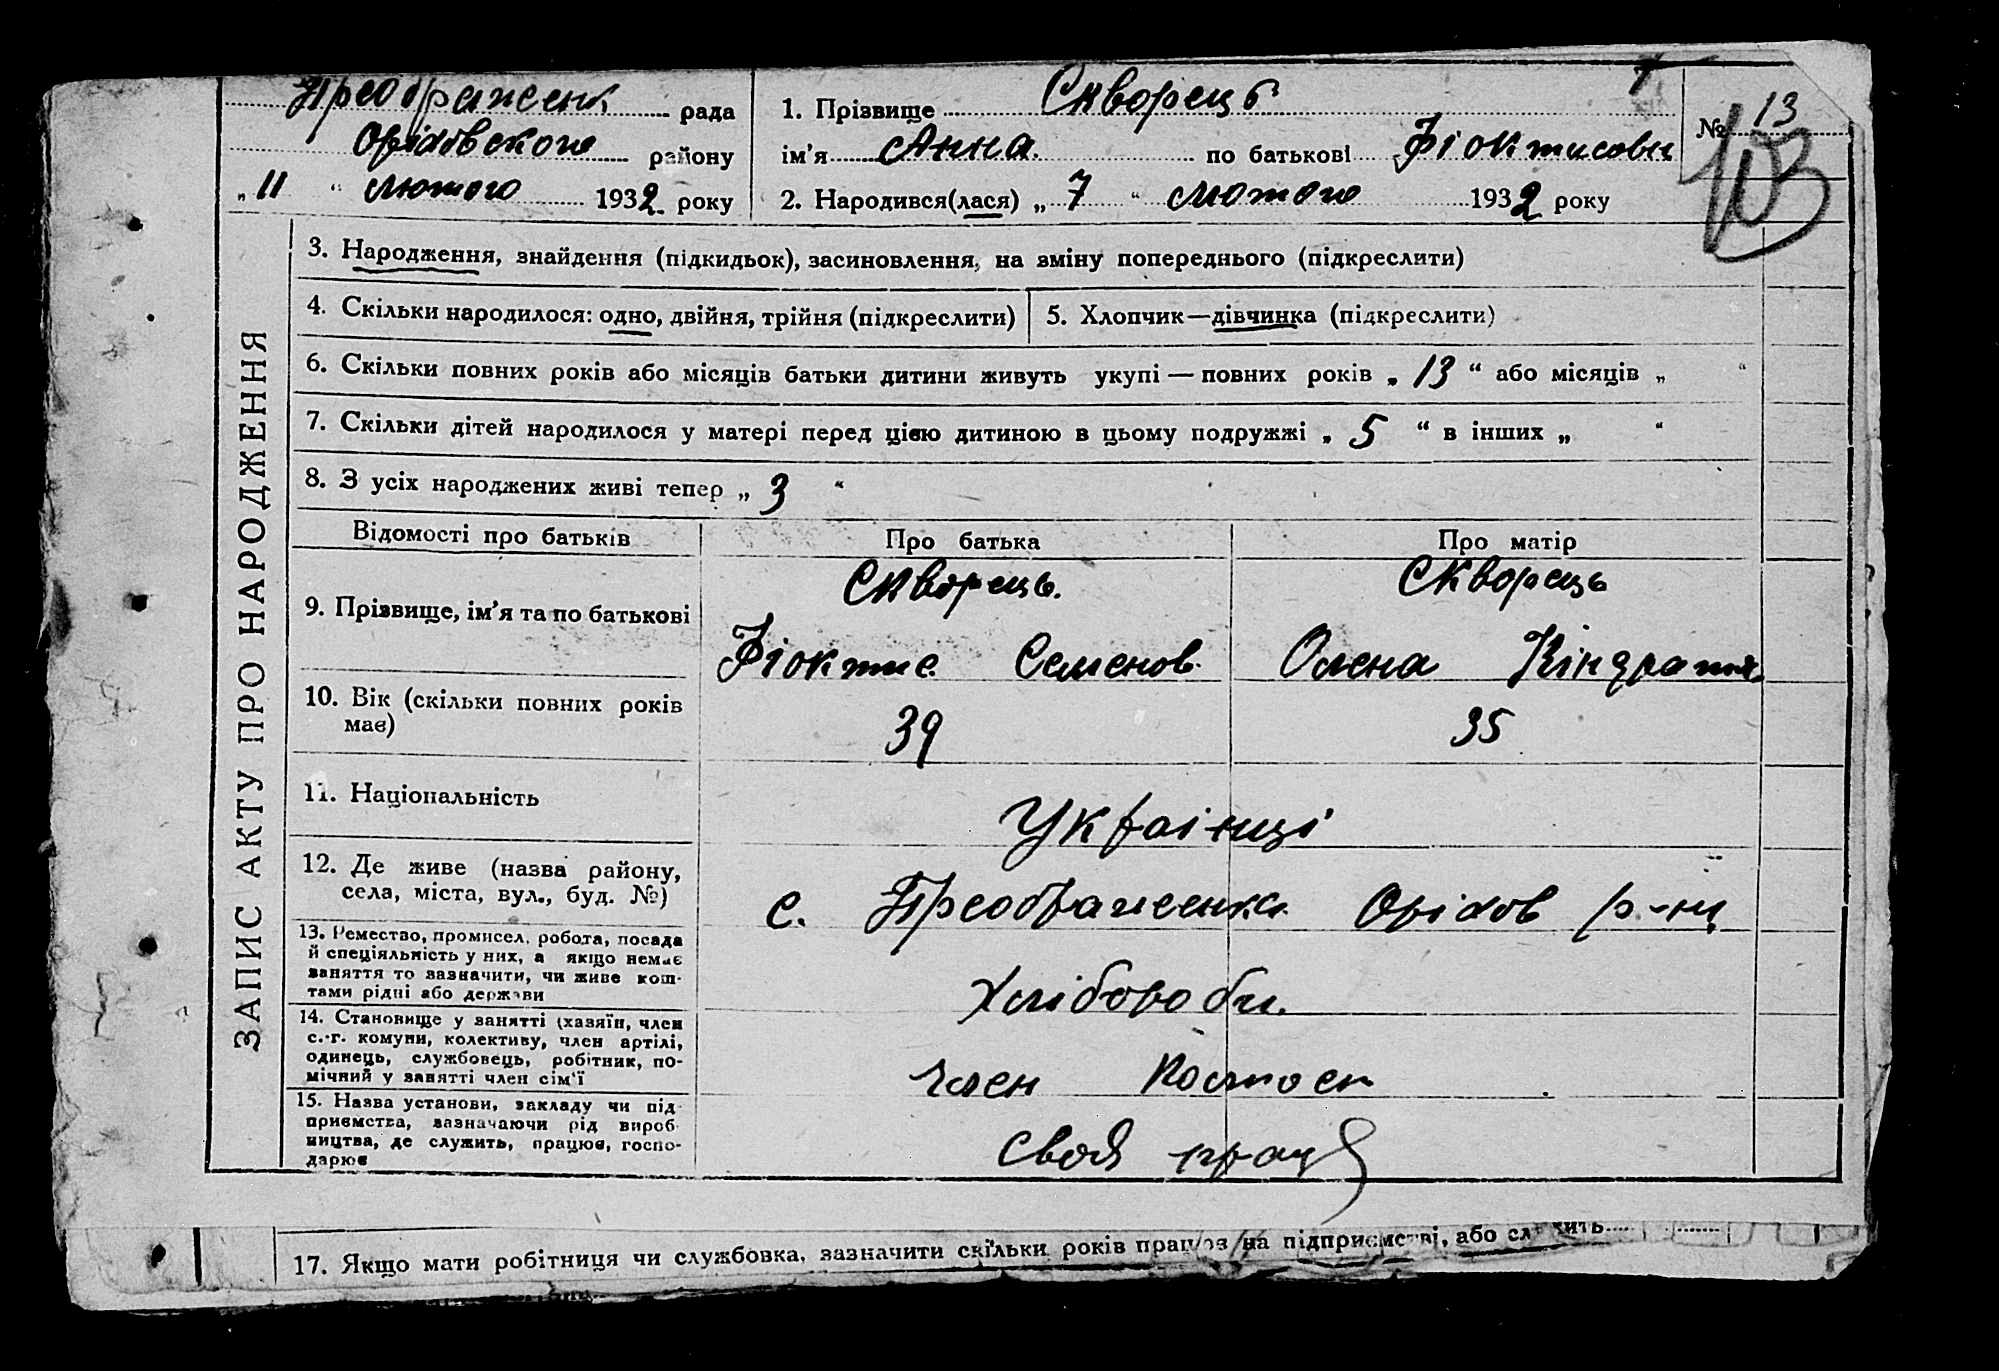 Преображенк рада
Оріховского району
„ 11 “ лютого 1932 року
1. Прізвище Скворець
ім’я Анна по батькові Фіоктисовн
2. Народився(лася) „ 7 “ лютого 1932 року
№ 13
103
ЗАПИС АКТУ ПРО НАРОДЖЕННЯ
3. Народження, знайдення (підкидьок), засиновлення, на зміну попереднього (підкреслити)
4. Скільки народилося: одно, двійня, трійня (підкреслити)
5. Хлопчик—дівчинка (підкреслити)
6. Скільки повних років або місяців батьки дитини живуть укупі — повних років „ 13 “ або місяців „ “
7. Скільки дітей народилося у матері перед цією дитиною в цьому подружжі „ 5 “ в інших „ “
8. З усіх народжених живі тепер „ 3 “
Відомості про батьків
Про батька
Про матір
9. Прізвище, ім’я та по батькові
Скворець.
Фіоктис Семенов.
Скворець
Олена Кіндратів.
10. Вік (скільки повних років
має)
39
35
11. Національність
Українці
12. Де живе (назва району,
села, міста, вул., буд. №)
с. Преображенка Оріхов р-ну
13. Ремество, промисел, робота, посада
й спеціяльність у них, а якщо немає
заняття то зазначити, чи живе кош-
тами рідні або держави
Хлібороби.
14. Становище у занятті (хазяїн, член
с.-г. комуни, колективу, член артілі,
одинець, службовець, робітник, по-
мічний у занятті член сім’ї
член
15. Назва установи, закладу чи під-
приємства, зазначаючи рід вироб-
ництва, де служить, працює, госпо-
дарює
своя праця
17. Якщо мати робітниця чи службовка, зазначити скільки років працює на підприємстві, або служить